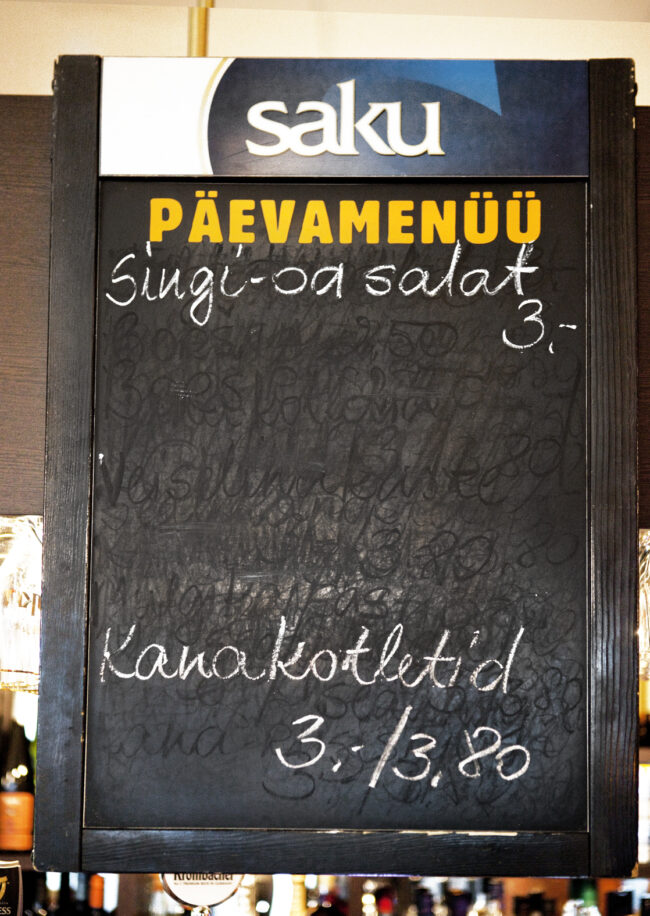 saku
PÄEVAMENÜÜ
Singi-oa salat
3.-
Kanakotletid
3.-/3.80
Krombacher